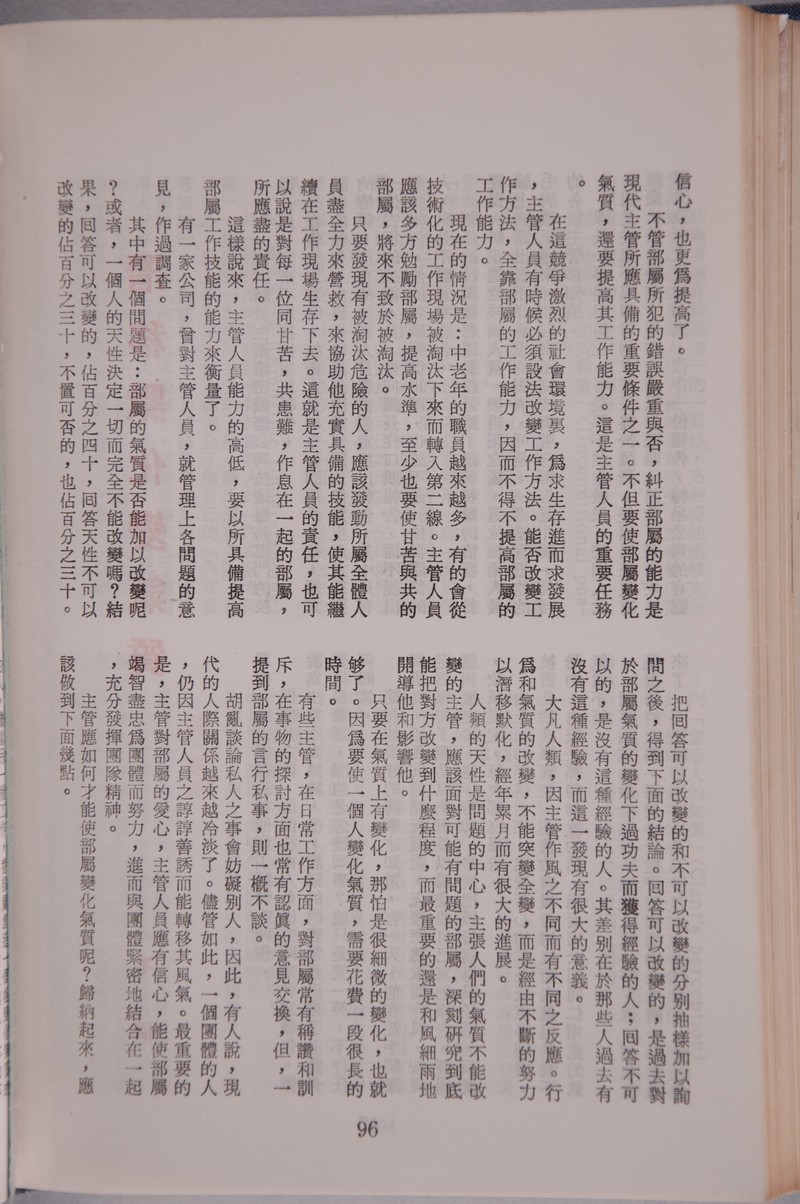 信心，也更爲提高了。
不管部屬所犯的錯誤嚴重與否，糾正部屬的能力是
現代主管所應具備的重要條件之一。不但要使部屬變化
氣質，還要提高其工作能力。這是主管人員的重要任務
。
在這競爭激烈的社會環境裏，爲求生存進而求發展
，主管人員有時候必須設法改變工作方法。能否改變工
作方法，全靠部屬的工作能力，因而不得不提高部屬的
工作能力。
現在的情況是：中老年的職員越來越多，有的會從
技術化的工作現場被淘汰下來而轉入第二線。主管人員
應該多方勉勵部屬，提高水準，至少也要使甘苦與共的
部屬，將來不致於被淘汰。
只要發現有被淘汰危險的人，應該發動所屬全體人
員盡全力來營救，來協助他充實具備的技能，使其能繼
續在工作現場生存下去。這就是主管人員的責任，也可
以說是對每一位同甘苦，共患難，作息在一起的部屬，
所應盡的責任。
這樣說來，主管人員能力的高低，要以所具備提高
部屬工作技能的能力來衡量了。
有一家公司，曾對主管人員，就管理上各問題的意
見，作過調查。
其中有一個問題是：部屬的氣質是否能加以改變呢
？或者，一個人的天性決定一切而完全不能改變嗎？結
果，回答可以改變的，佔百分之四十，回答天性不可以
改變的佔百分之三十，不置可否的，也佔百分之三十。
把回答可以改變的和不可以改變的分別抽樣加以詢
問之後，得到下面的結論。回答可以改變的，是過去對
於部屬氣質的變化下過功夫而獲得經驗的人；回答不可
以的，是沒有這種經驗的人。其差別在於那些人過去有
沒有這種經驗，而這一發現有很大的意義。
大凡人類，因主管作風之不同而有不同之反應。行
爲和氣質的改變，不能突變全變，而是經由不斷的努力
以潛移默化，經年累月而有很大的進展。
人類的天性是問題的中心，主張人們的氣質不能改
變的主管，應該面對可能有問題的部屬，深刻研究到底
能把對方改變到什麼程度，而最重要的還是和風細雨地
開導他和影響他。
只要在氣質上有變化，那怕是很細微的變化，也就
够了。因爲要使一個人變化氣質，需要花費一段很長的
時間。
有些主管，在日常工作方面，對部屬常有稱讚和訓
斥，在事物的探討方面也常有認眞的意見交換，但，一
提到部屬的言行私事，則一概不談。
胡亂談論私人之事會妨礙别人，因此，有人說，現
代的人際關係越來越冷淡了。儘管如此，一個團體的人
，仍因主管人員之諄諄善誘而能轉移其風氣。最重要的
是，主管對部屬的愛心，主管人員應有信心，能使部屬
竭智盡忠爲團體而努力，進而與團體緊密地結合在一起
，充分發揮團隊精神。
主管應如何才能使部屬變化氣質呢？歸納起來，應
該做到下面幾點。
96